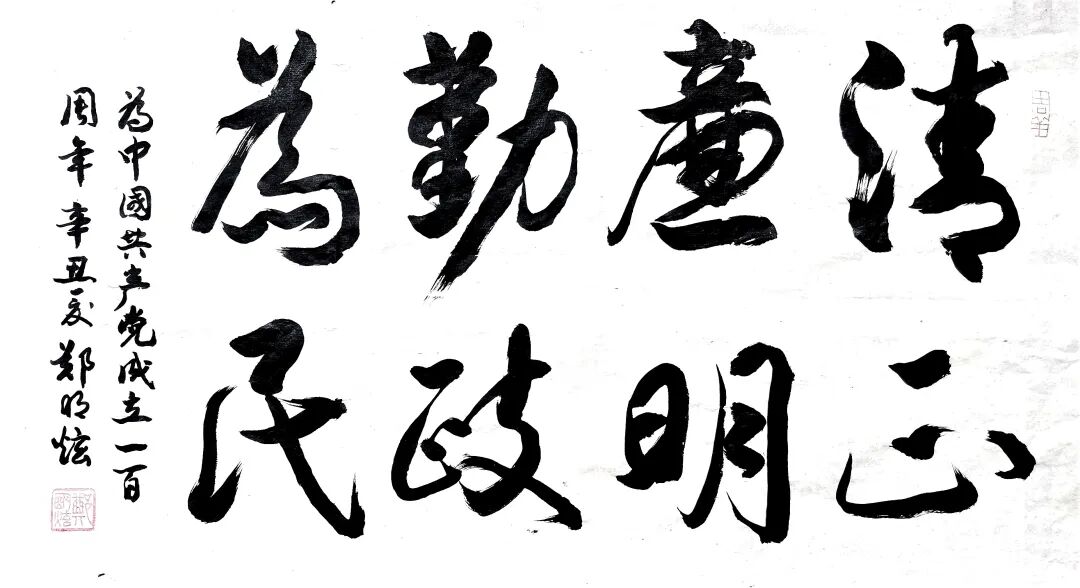 清正
廉明
勤政
為民
為中國共产党成立一百
周年 辛丑夏 郑明炫